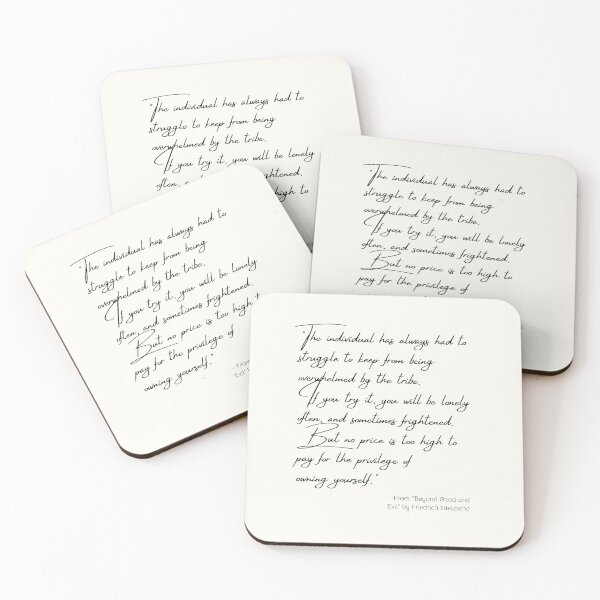 "The individual has always had to
struggle to keep from being
overwhelmed by the tribe.
If you try it, you will be lonely
often, and sometimes frightened.
But no price is too high to
"The individual has always had to
struggle to keep from being
overwhelmed by the tribe.
If you try it, you will be lonely
often, and sometimes frightened.
But no price is too high to
pay for the privilege of
"The individual has always had to
struggle to keep from being
overwhelmed by the tribe.
If you try it, you will be lonely
often, and sometimes frightened.
But no price is too high t
pay for the privilege of
owning yourself."
From
Evil"
"The individual has always had to
struggle to keep from being
overwhelmed by the tribe.
If you try it, you will be lonely
often, and sometimes frightened.
But no price is too high to
pay for the privilege of
owning yourself."
From "Beyond Good und
Evil" by Friedrich Nietzsche